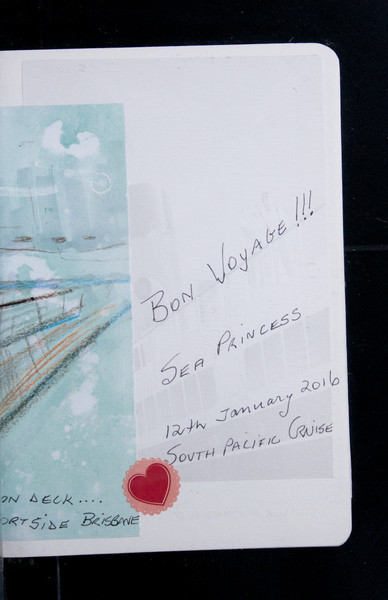 BON VOYAGE!!!
SEA PRINCESS
12th January 2016
SOUTH PACIFIC CRUISE
ON DECK....
ORTSIDE BRISBANE